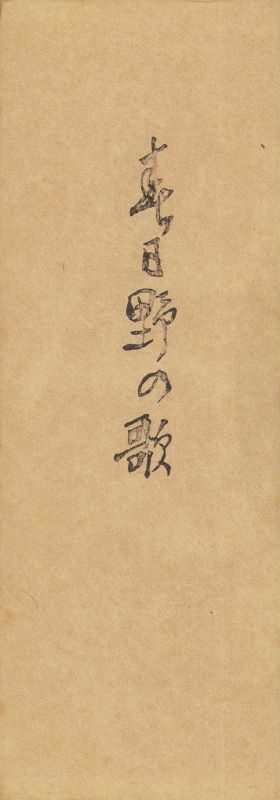 春日野の歌